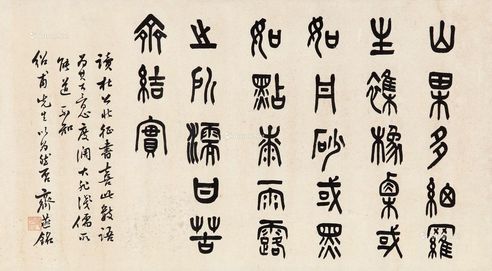 山果多細羅
生雜橡栗或
如丹砂或黑
如點桼雨露
之所濡甘苦
齊結實
讀杜公北征書喜此數語
為其意度闊大非淺儒所
能道不知
紹甫先生以為然否 齊燕銘